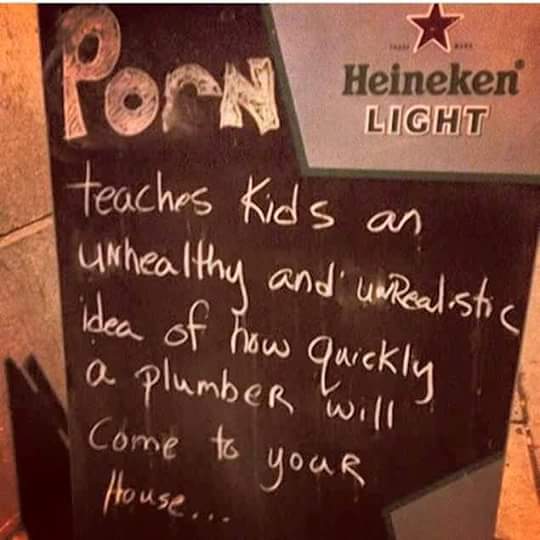 PoRN
TRADE MARK
Heineken®
LIGHT
teaches Kids an
uNhealthy and uNRealistic
idea of how quickly
a plumbeR will
Come to youR
House...